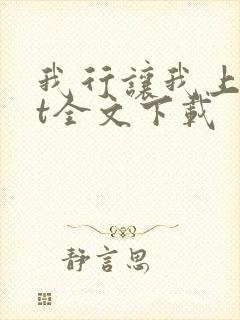 我行讓我上
t全文下載
靜言思